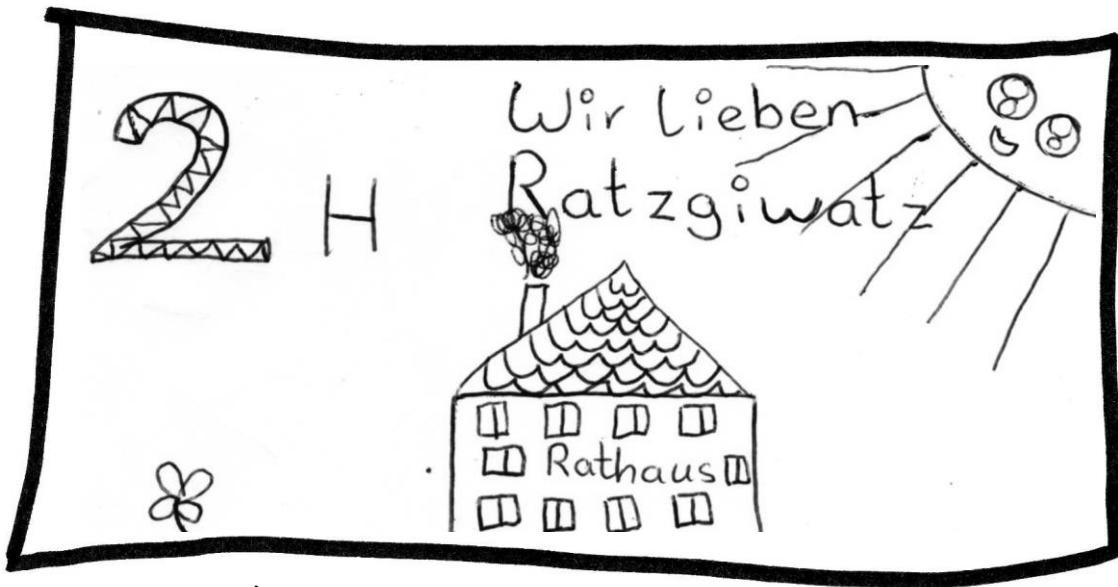 2 H
Wir lieben
Ratzgiwatz
Rathaus